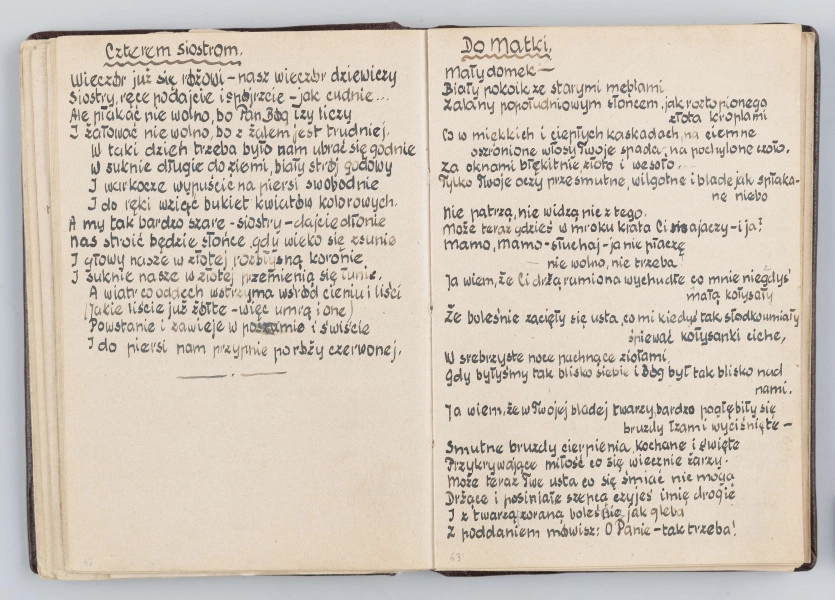 Czterem siostrom.
Wieczór już się różowi – nasz wieczór dziewiczy
Siostry, ręce podajcie i spójrzcie – jak cudnie...
Ale płakać nie wolno, bo Pan Bóg łzy liczy
I żałować nie wolno, bo z żalem jest trudniej.
W taki dzień trzeba było nam ubrać się godnie
W suknie długie do ziemi, biały strój godowy
I warkocze wypuścić na piersi swobodnie
I do ręki wziąść bukiet kwiatów kolorowych.
A my tak bardzo szare – siostry – dajcie dłonie
Nas stroić będzie słońce, gdy wieko się zsunie
I głowy nasze w złotej rozbłysną koronie
I suknie nasze w złotej przemienią się łunie.
A wiatr co oddech wstrzyma wśród cieniu i liści
(Jakie liście już żółte – więc umrą i one)
Powstanie i zawieje w poszumie i świście
I do piersi nam przypnie po róży czerwonej.
Do Matki.
Mały domek —
Biały pokoik ze starymi meblami
Zalany popołudniowym słońcem, jak roztopionego
złota kroplami
Co w miękkich i ciepłych kaskadach, na ciemne
oszronione włosy Twoje spada, na pochylone czoło.
Za oknami błękitnie, złoto i wesoło.
Tylko Twoje oczy przesmutne, wilgotne i blade jak spłaka-
ne niebo
Nie patrzą, nie widzą nic z tego.
Może teraz gdzieś w mroku krata Ci majaczy – i ja?
Mamo, Mamo – słuchaj – ja nie płaczę
nie wolno, nie trzeba!
Ja wiem, że Ci drżą ramiona wychudłe co mnie niegdyś
małą kołysały
Że boleśnie zacięły się usta, co mi kiedyś tak słodko umiały
śpiewać kołysanki ciche,
W srebrzyste noce pachnące ziołami
Gdy byłyśmy tak blisko siebie i Bóg był tak blisko nad
nami.
Ja wiem, że w Twojej bladej twarzy, bardzo pogłębiły się
bruzdy łzami wyciśnięte –
Smutne bruzdy cierpienia, kochane i święte
Przykrywające miłość co się wiecznie żarzy.
Może teraz Twe usta co się śmiać nie mogą
Drżące i posiniałe szepcą czyjeś imię drogie
I z twarzą zoraną boleśnie, jak gleba
Z poddaniem mówisz: O Panie – tak trzeba!
63